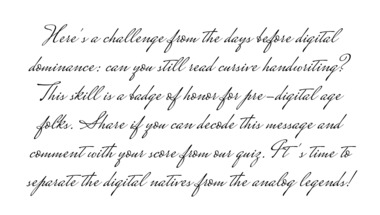 Here's a challenge from the days before digital
dominance: can you still read cursive handwriting?
This skill is a badge of honor for pre-digital age
folks. Share if you can decode this message and
comment with your score from our quiz. It's time to
separate the digital natives from the analog legends!